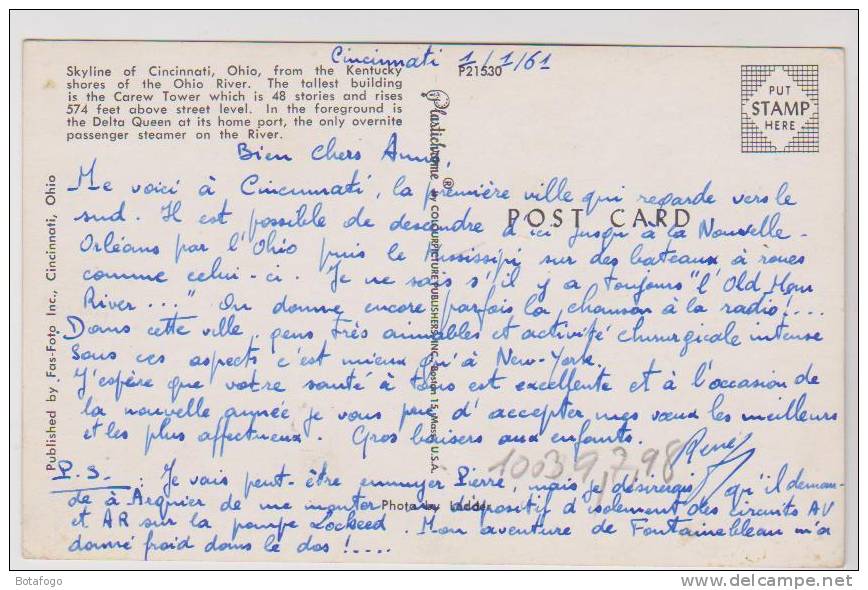 Cincinnati 1/1/61
Skyline of Cincinnati, Ohio, from the Kentucky
shores of the Ohio River. The tallest building
is the Carew Tower which is 48 stories and rises
574 feet above street level. In the foreground is
the Delta Queen at its home port, the only overnite
passenger steamer on the River.
P21530
PUT
STAMP
HERE
Published by Fas-Foto Inc., Cincinnati, Ohio
Plastichrome ® by COLOURPICTURE PUBLISHERS, INC. Boston 15, Mass., U.S.A.
POST CARD
Bien chers Amis,
Me voici à Cincinnati, la première ville qui regarde vers le
sud. Il est possible de descendre d'ici jusqu'à la Nouvelle-
Orléans par l'Ohio puis le Mississipi sur des bateaux à roues
comme celui-ci. Je ne sais s'il y a toujours "l'Old Man
River..." On donne encore parfois la chanson à la radio!...
Dans cette ville, gens très aimables et activité chirurgicale intense
Sous ces aspects c'est mieux qu'à New-York.
J'espère que votre santé à tous est excellente et à l'occasion de
la nouvelle année je vous prie d'accepter mes vœux les meilleurs
et les plus affectueux. Gros baisers aux enfants.
René
10039,7,98
P.S. Je vais peut-être ennuyer Pierre, mais je désirerais qu'il deman-
de à Arquier de me monter dispositif d'isolement des circuits AV
et AR sur la pompe Lockeed. Mon aventure de Fontainebleau m'a
donné froid dans le dos !....
Photo by Ladder
Botafogo
www.delcampe.net